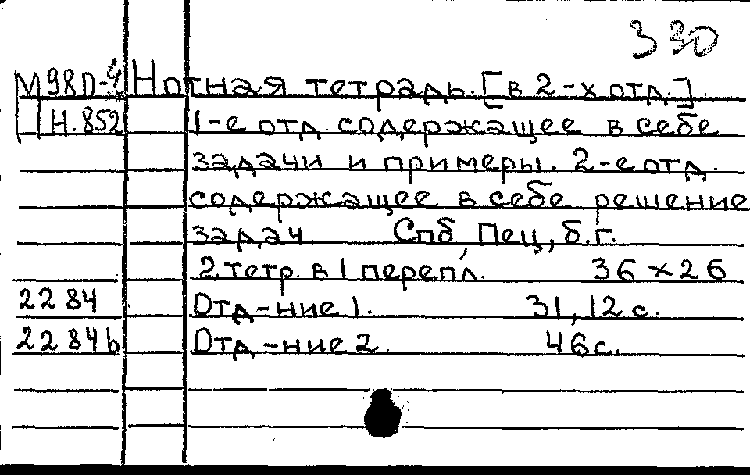 330
М98П-4 Нотная тетрадь. [в 2-х отд.]
Н.852 1-е отд содержащее в себе
задачи и примеры. 2-е отд.
содержащее в себе решение
задач Спб, Пец, б.г.
2 тетр. в 1 перепл. 36 × 26
2284 Отд-ние 1. 31, 12 с.
2284b Отд-ние 2. 46 с.